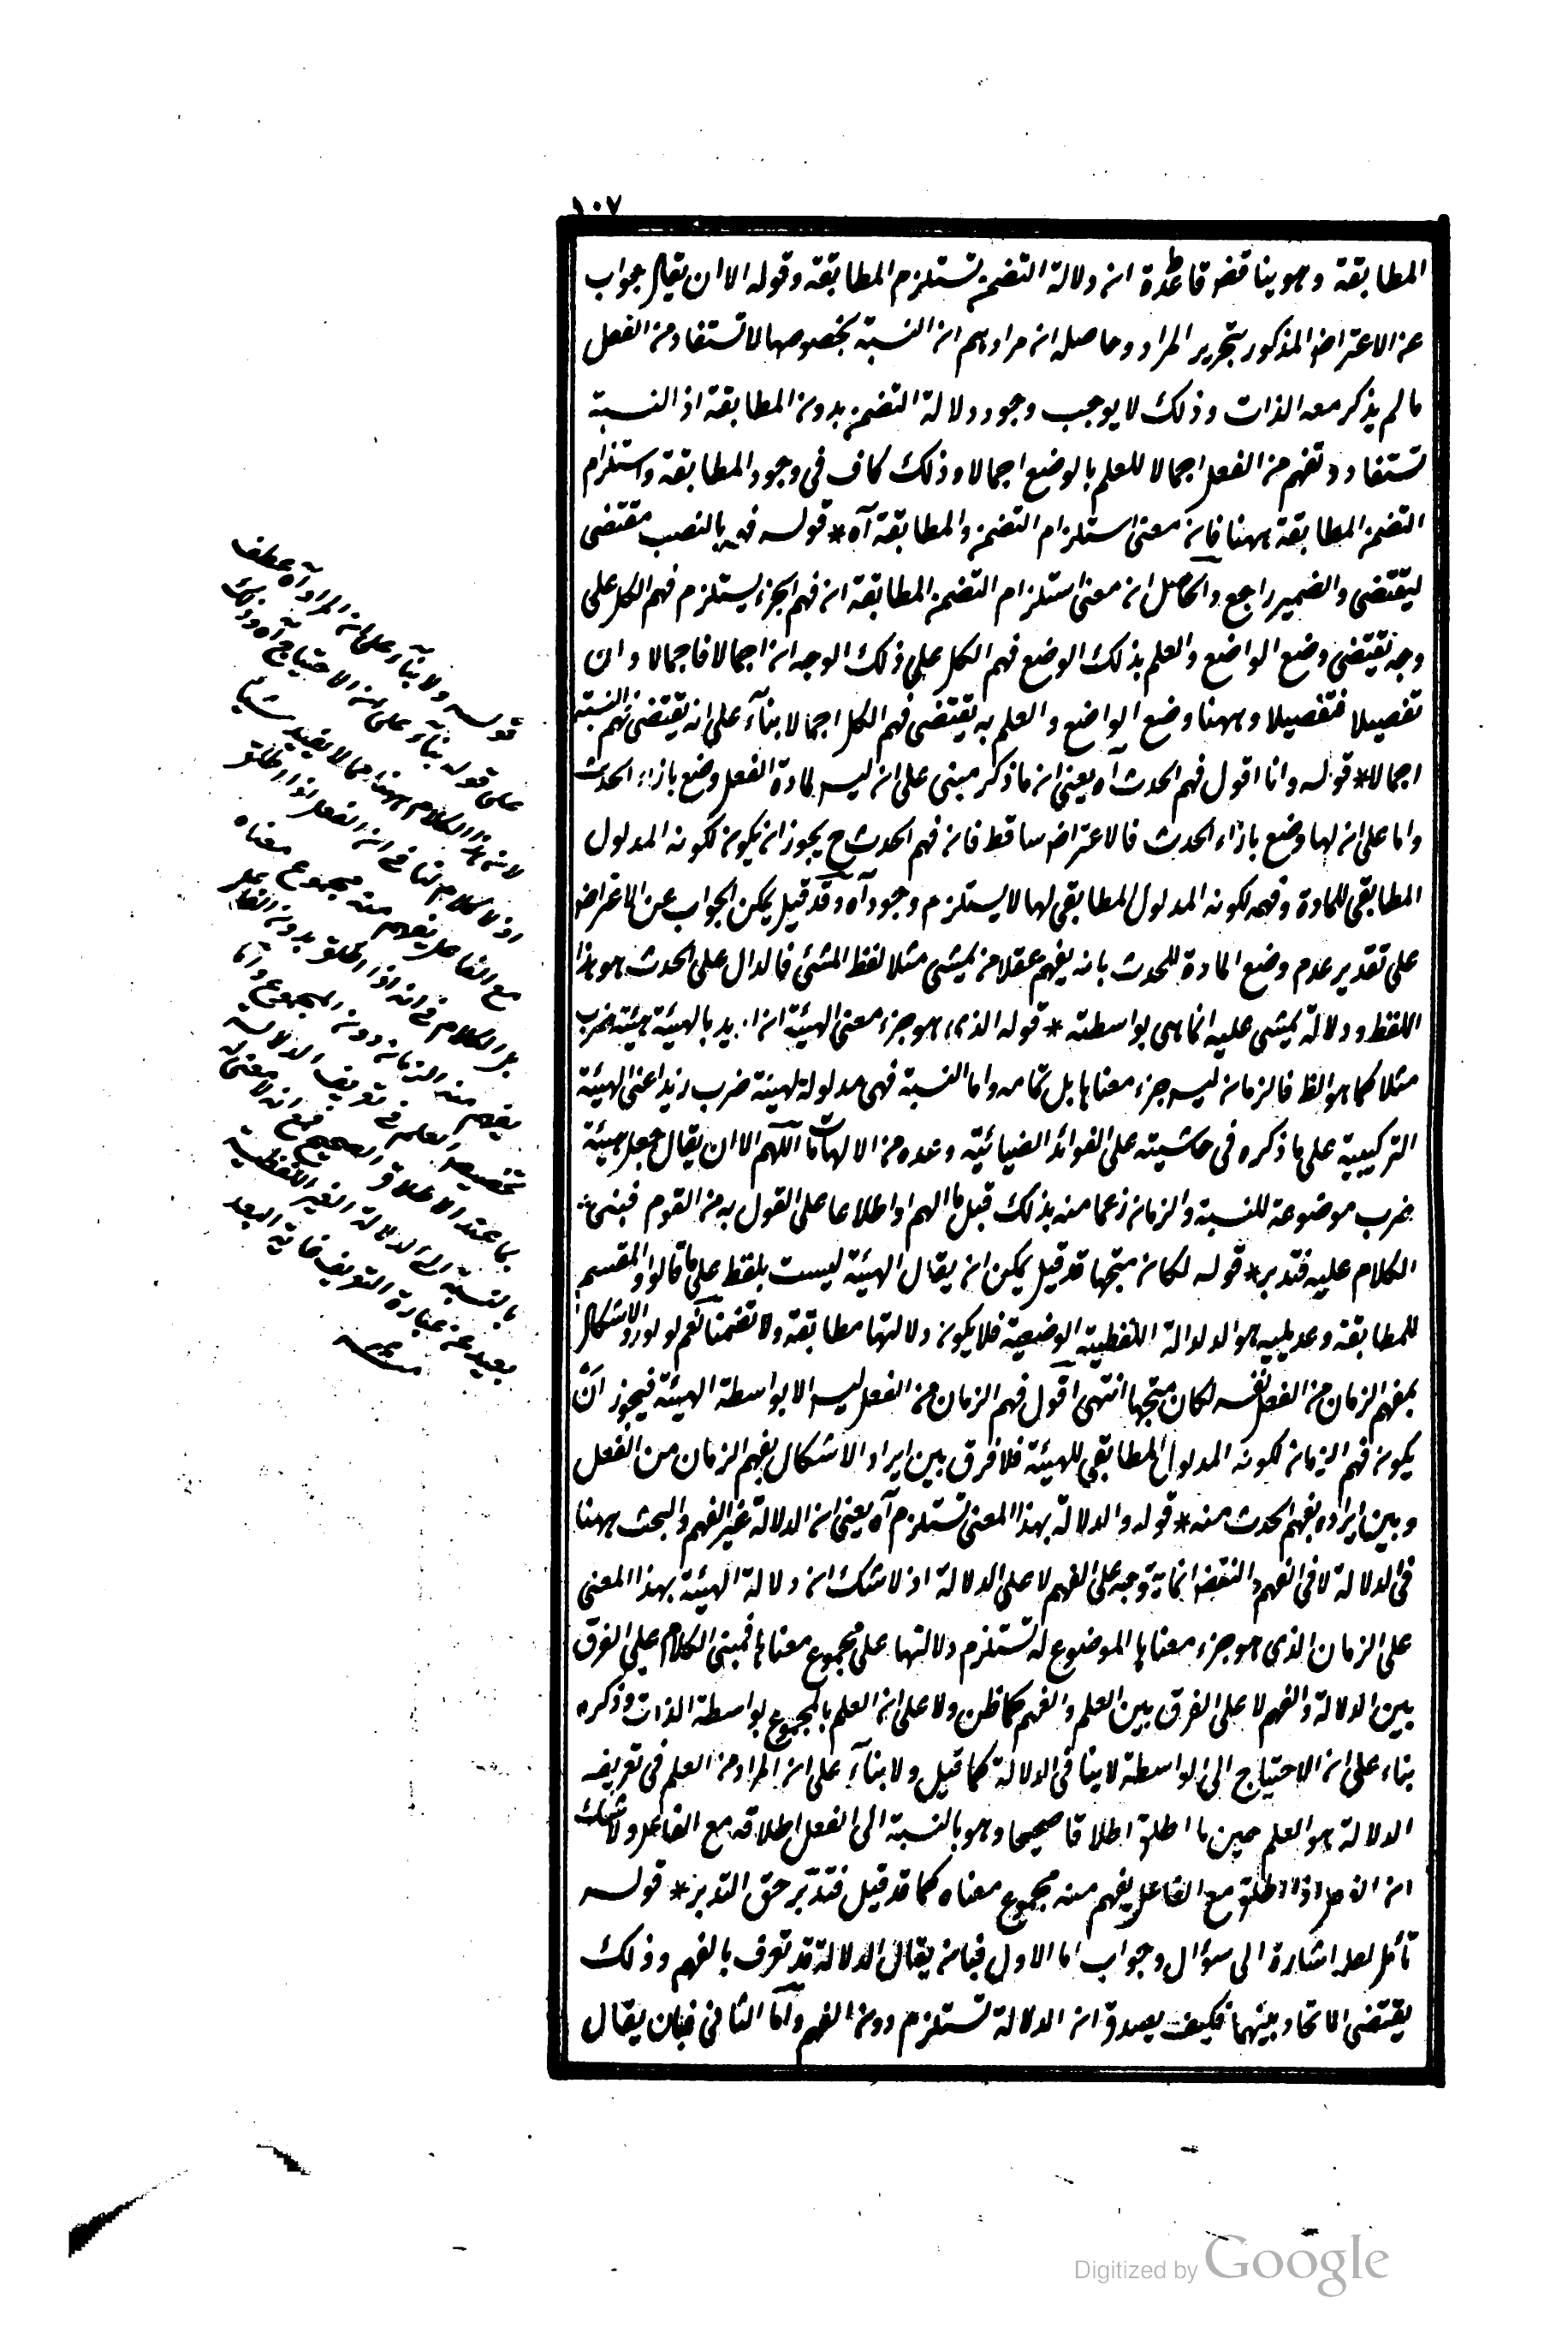 ١٠٧
المطابقة وهو يناقض قاعدة ان دلالة التضمن تستلزم المطابقة وقوله الا ان يقال جواب
عن الاعتراض المذكور بتحرير المراد وحاصله ان مرادهم ان النسبة بخصوصها لا تستفاد من الفعل
ما لم يذكر معه الذات وذلك لا يوجب وجود دلالة التضمن بدون المطابقة اذ النسبة
تستفاد وتفهم من الفعل اجمالا للعلم بالوضع اجمالا وذلك كاف فى وجود المطابقة واستلزام
التضمن المطابقة ههنا فان معنى استلزام التضمن والمطابقة آه * قوله فهم بالنصب مقتضى
ليقتضى والضمير راجع والحاصل ان معنى استلزام التضمن المطابقة ان فهم الجزء يستلزم فهم الكل على
وجه يقتضى وضع الواضع والعلم بذلك الوضع فهم الكل على ذلك الوجه ان اجمالا فاجمالا وان
تفصيلا فتفصيلا وههنا وضع الواضع والعلم به يقتضى فهم الكل اجمالا بنآء على انه يقتضى فهم النسبة
اجمالا * قوله وانا اقول فهم الحدث آه يعنى ان ما ذكر مبنى على ان ليس لمادة الفعل وضع بازاء الحدث
واما على ان لها وضع بازاء الحدث فالاعتراض ساقط فان فهم الحدث ح يجوز ان يكون لكونه المدلول
المطابقى للمادة وفهمه لكونه المدلول المطابقى لها لا يستلزم وجود آه وقد قيل يمكن الجواب عن الاعتراض
على تقدير عدم وضع المادة للحدث بانه يفهم عقلا من يمشى مثلا لفظ المشى فالدال على الحدث هو هذا
اللفظ ودلالة يمشى عليه انما هى بواسطته * قوله الذى هو جزء معنى الهيئة ان اريد بالهيئة هيئة ضرب
مثلا كما هو الظ فالزمان ليس جزء معناها بل تمامه واما النسبة فهى مدلولة لهيئة ضرب زيد اعنى الهيئة
التركيبية على ما ذكره فى حاشيته على الفوائد الضيائية وعده من الالهامات اللهم الا ان يقال جعل هيئة
ضرب موضوعة للنسبة والزمان زعما منه بذلك قبل ما الهم او اطلاعا على القول به من القوم فبنى
الكلام عليه فتدبر * قوله لكان متجها قد قيل يمكن ان يقال الهيئة ليست بلفظ على ما قالوا والمقسم
للمطابقة وعديليه هو الدلوالة اللفظية الوضعية فلا يكون دلالتها مطابقة ولا تضمنا نعم لو لورد الاشكال
بفهم الزمان من الفعل نفسه لكان متجها انتهى اقول فهم الزمان من الفعل ليس الا بواسطة الهيئة فيجوز ان
يكون فهم الزمان لكونه المدلول المطابقى للهيئة فلا فرق بين ايراد الاشكال بفهم الزمان من الفعل
وبين ايراده بفهم الحدث منه * قوله والدلالة بهذا المعنى تستلزم آه يعنى ان الدلالة غير الفهم والبحث ههنا
فى الدلالة لا فى الفهم والنقض انما يتوجه على الفهم لا على الدلالة اذ لا شك ان دلالة الهيئة بهذا المعنى
على الزمان الذى هو جزء معناها الموضوع له تستلزم دلالتها على مجموع معناها فمبنى الكلام على الفرق
بين الدلالة والفهم لا على الفرق بين العلم والفهم كما ظن ولا على ان العلم بالمجموع بواسطة الذات وذكره
بناء على ان الاحتياج الى الواسطة لا ينافى الدلالة كما قيل ولا بنآء على ان المراد من العلم فى تعريف
الدلالة هو العلم حين ما اطلق اطلاقا صحيحا وهو بالنسبة الى الفعل اطلاقه مع الفاعل ولا شك
ان الفعل اذا اطلق مع الفاعل يفهم منه مجموع معناه كما قد قيل فتدبر حق التدبر * قوله
تأمل لعله اشارة الى سؤال وجواب اما الاول فبان يقال الدلالة قد تعرف بالفهم وذلك
يقتضى الاتحاد بينهما فكيف يصدق ان الدلالة تستلزم دون الفهم واما الثانى فبان يقال
قوله ولا بنآء على ان المراد آه عطف
على قوله بنآء على ان الاحتياج آه وذلك
لان الكلام ههنا مما لا يفيد شيئا
اذ لا كلام لنا فى ان الفعل اذا اطلق
مع الفاعل يفهم منه مجموع معناه
بل الكلام فى انه اذا اطلق بدون الفاعل
يفهم منه الزمان دون المجموع واما
تخصيص العلم فى تعريف الدلالة
بما عند الاطلاق الصحيح فمع انه لا معنى له
بالنسبة الى الدلالة الغير اللفظية
بعيد عن عبارة التعريف غاية البعد
منه
Digitized by Google